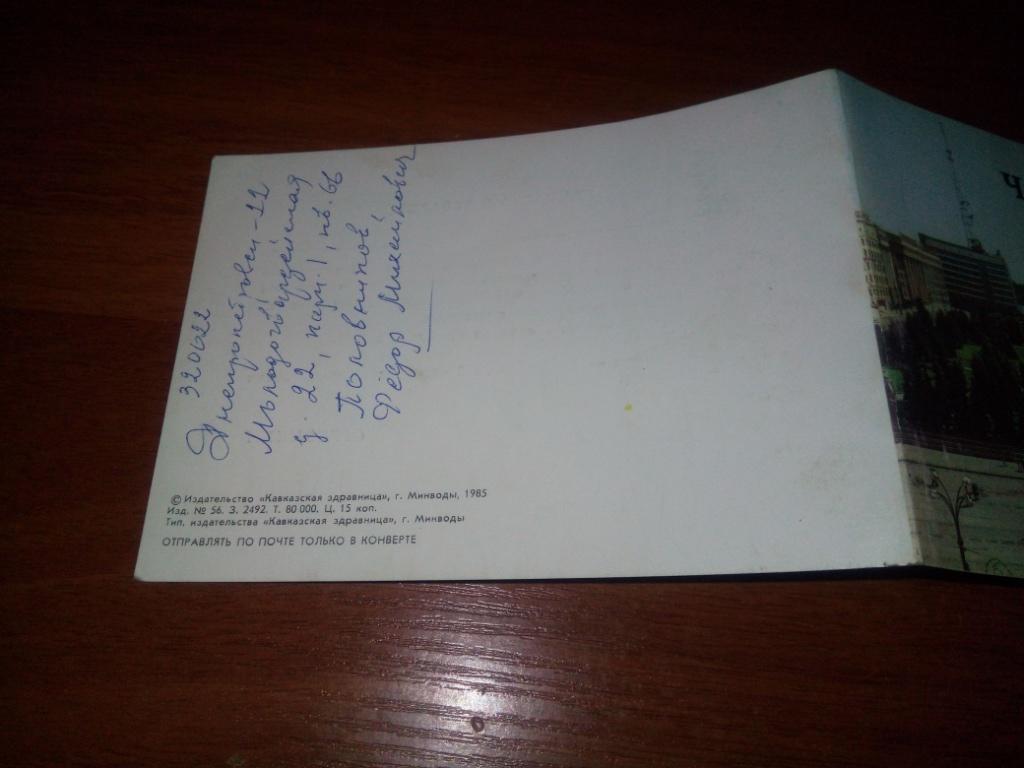 320622
Днепропетровск-22
Молодогвардейская
д. 22, пар. 1, кв. 66
Половников
Фёдор Михайлович
© Издательство «Кавказская здравница», г. Минводы, 1985
Изд. № 56. З. 2492. Т. 80 000. Ц. 15 коп.
Тип. издательства «Кавказская здравница», г. Минводы
ОТПРАВЛЯТЬ ПО ПОЧТЕ ТОЛЬКО В КОНВЕРТЕ
Ч